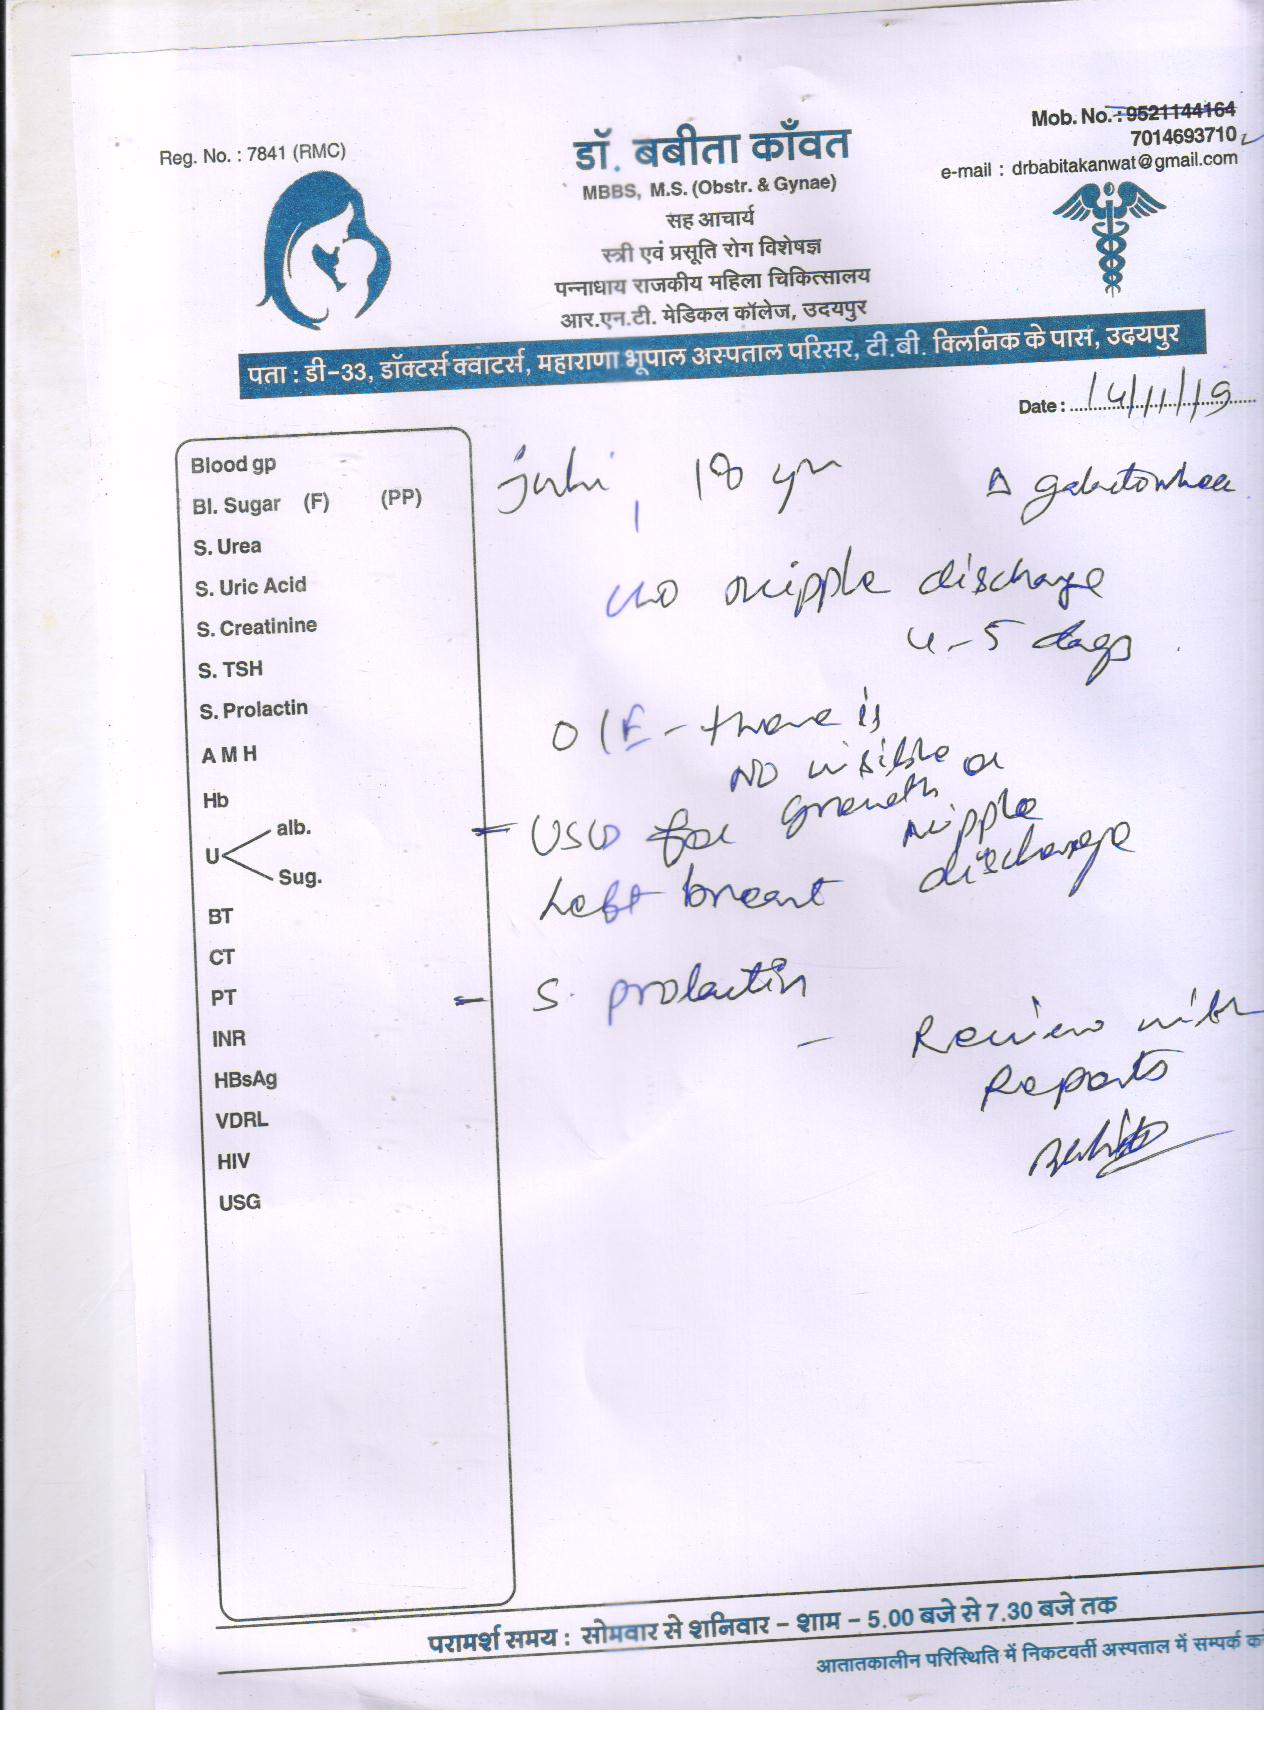 Reg. No. : 7841 (RMC)
Mob. No. : 9521144164
7014693710
e-mail : drbabitakanwat@gmail.com
डॉ. बबीता काँवत
MBBS, M.S. (Obstr. & Gynae)
सह आचार्य
स्त्री एवं प्रसूति रोग विशेषज्ञ
पन्नाधाय राजकीय महिला चिकित्सालय
आर.एन.टी. मेडिकल कॉलेज, उदयपुर
पता : डी-33, डॉक्टर्स क्वाटर्स, महाराणा भूपाल अस्पताल परिसर, टी.बी. क्लिनिक के पास, उदयपुर
Date : 14/11/19
Blood gp
Bl. Sugar (F) (PP)
S. Urea
S. Uric Acid
S. Creatinine
S. TSH
S. Prolactin
A M H
Hb
U alb.
Sug.
BT
CT
PT
INR
HBsAg
VDRL
HIV
USG
18 yr
nipple discharge
4-5 days
O/E - there is
NO visible or
growth nipple
discharge
- USG for
Left breast
- S. prolactin
- Review with
Reports
परामर्श समय : सोमवार से शनिवार - शाम - 5.00 बजे से 7.30 बजे तक
आतातकालीन परिस्थिति में निकटवर्ती अस्पताल में सम्पर्क